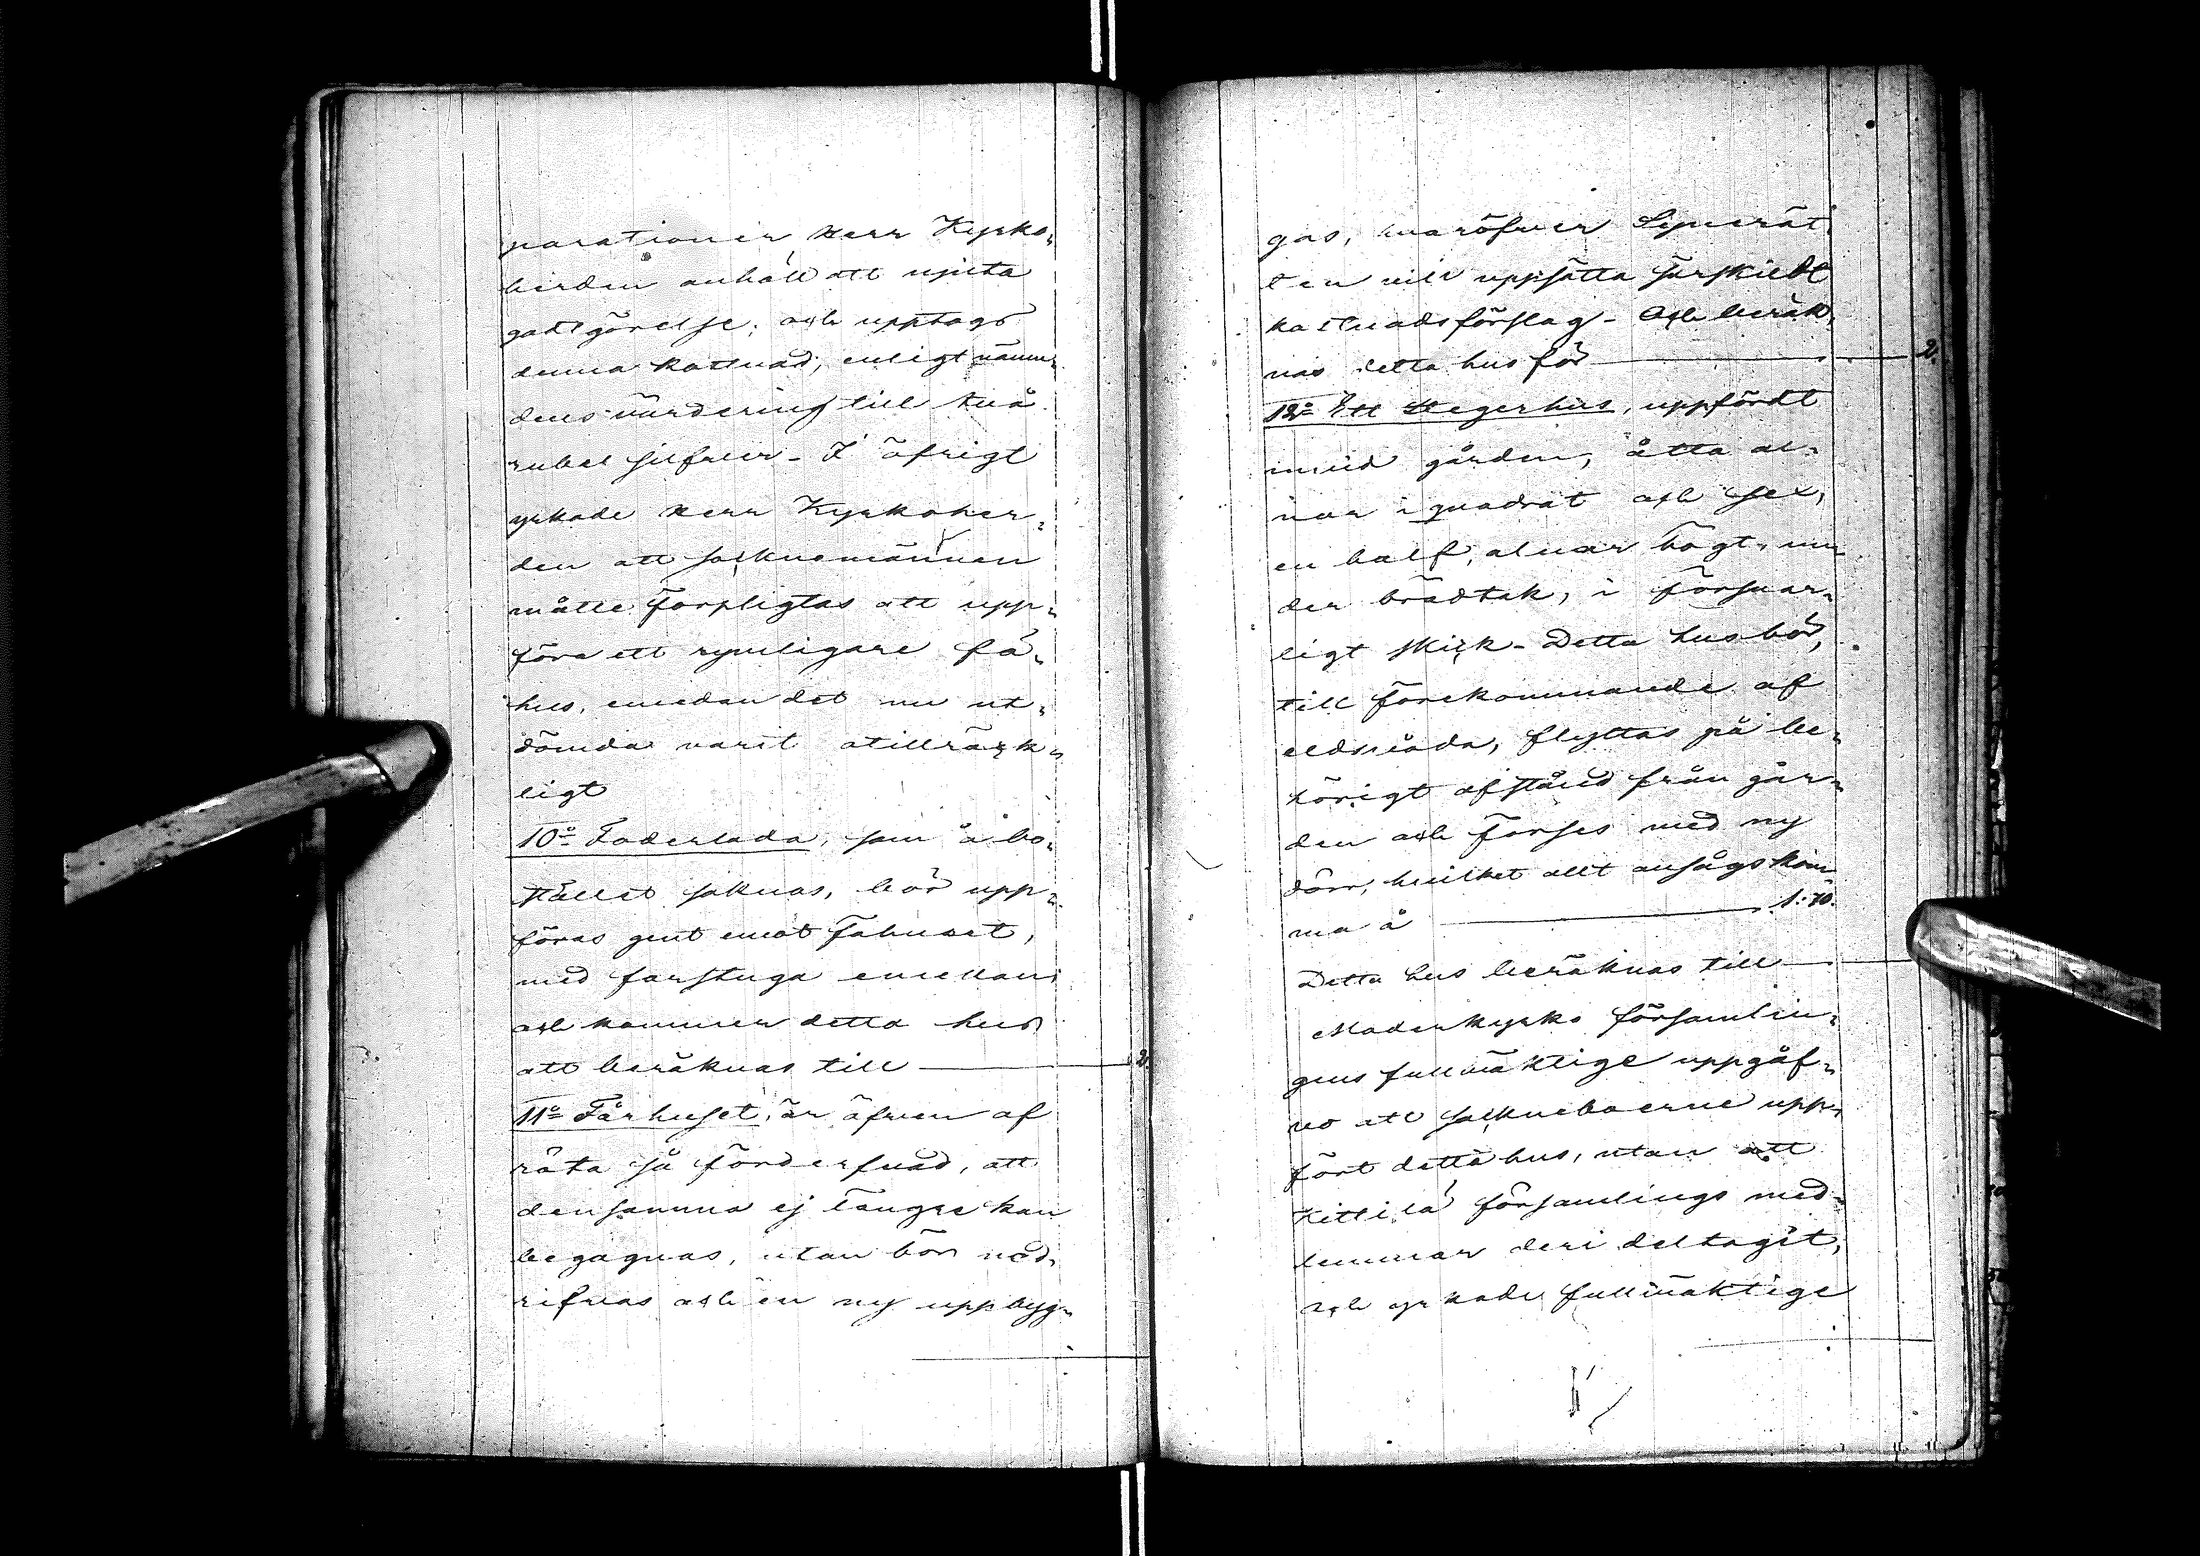 parationer Herr Kyrko-
herden anhöll att njuta
godtgörelse; och upptogs
denna kostnad, enligt nämn-
dens värdering till två
rubel silfver. I öfrigt
yrkade Herr Kyrkoher-
den att socknemännen
måtte förpligtas att upp-
föra ett rymligare fä-
hus, emedan det nu ut-
dömda varit otillräck-
ligt
10:o Foderlada, som å bo-
stället saknas, bör upp-
föras gent emot Fähuset,
med farstuga emellan
och kommer detta hus
att beräknas till 2.
11:o Fårhuset, är äfven af
röta så förderfvad, att
densamma ej längre kan
begagnas, utan bör ned-
rifvas och en ny uppbyg-
gas, hvaröfver Synerät-
ten vill uppsätta särskildt
kostnadsförslag. Och beräk-
nas detta hus för 2.
12:o Ett Stegerhus, uppfördt
invid gården, åtta al-
nar i quadrat och sex,
en half, alnar högt, un-
der brädtak, i försvar-
ligt skick. Detta hus bör,
till förekommande af
eldsvåda, flyttas på be-
hörigt afstånd från går-
den och förses med ny
dörr, hvilket allt ansågs kom-
ma å 1:70.
Detta hus beräknas till
Moderkyrko församlin-
gens fullmäktige uppgåf-
vo att socknebоerne upp-
fört detta hus, utan att
Kittilä församlings med-
lemmar deri deltagit,
och yrkade fullmäktige